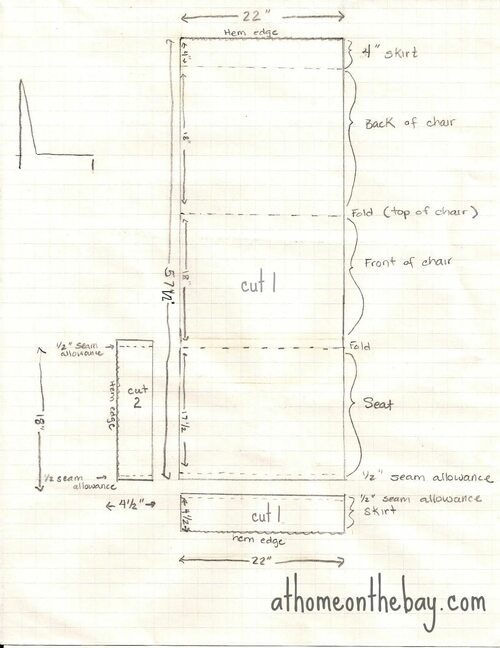 22"
Hem edge
4"
4" skirt
18"
Back of chair
Fold (top of chair)
57 1/2"
18"
cut 1
Front of chair
Fold
1/2" seam
allowance
18"
Hem edge
cut
2
1/2 seam
allowance
4 1/2"
17 1/2
Seat
1/2" seam allowance
4 1/2
cut 1
1/2" seam allowance
skirt
hem edge
22"
athomeonthebay.com